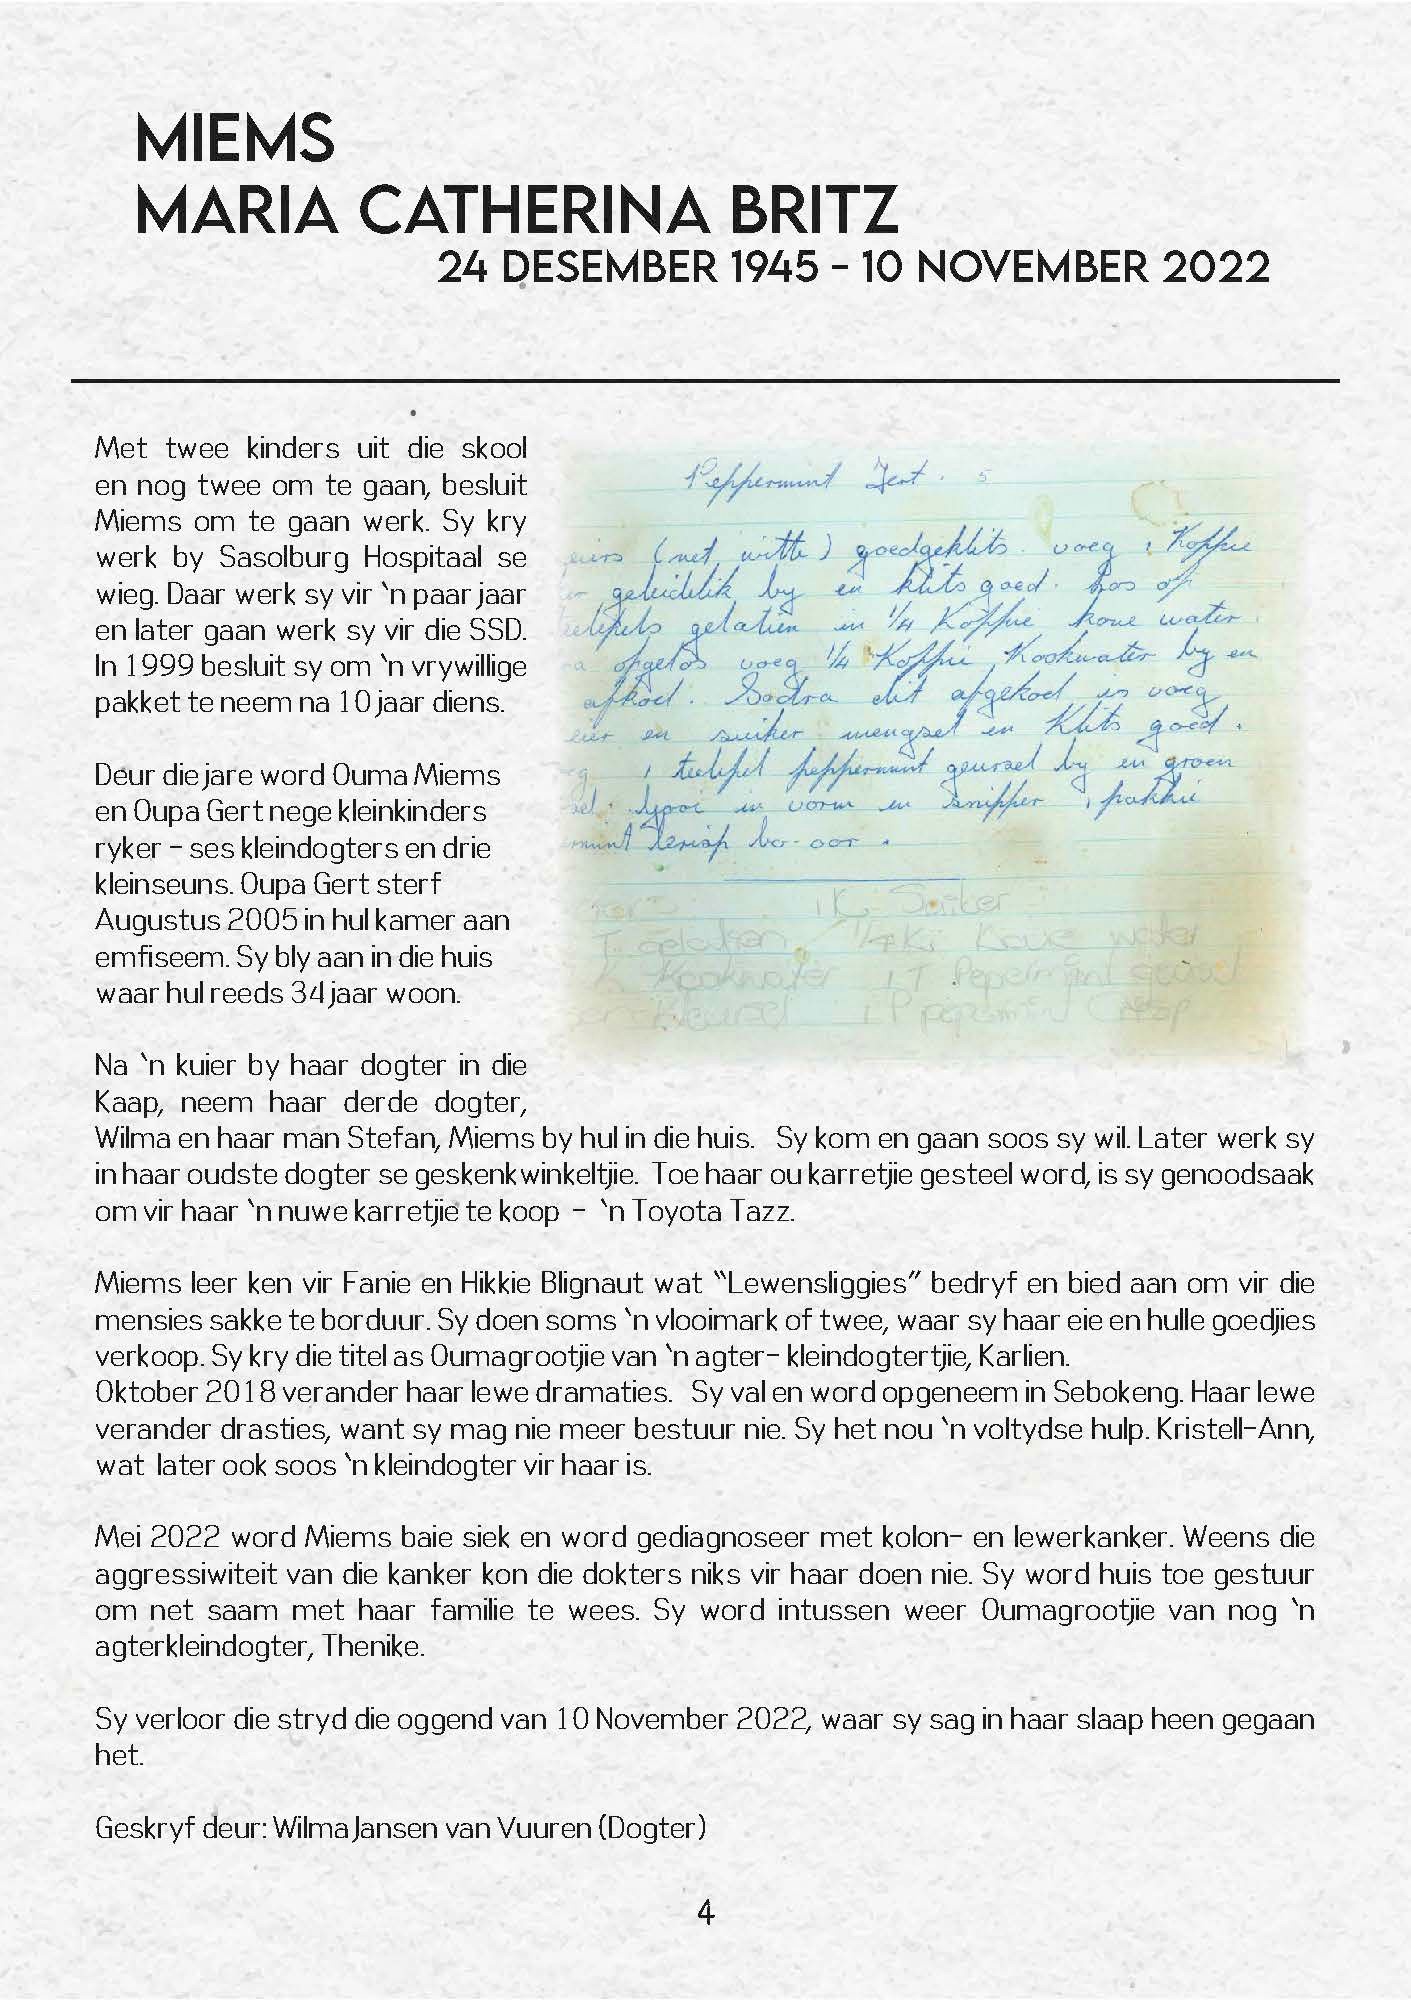 MIEMS
MARIA CATHERINA BRITZ
24 DESEMBER 1945 - 10 NOVEMBER 2022
Met twee kinders uit die skool
en nog twee om te gaan, besluit
Miems om te gaan werk. Sy kry
werk by Sasolburg Hospitaal se
wieg. Daar werk sy vir ‘n paar jaar
en later gaan werk sy vir die SSD.
In 1999 besluit sy om ‘n vrywillige
pakket te neem na 10 jaar diens.
Deur die jare word Ouma Miems
en Oupa Gert nege kleinkinders
ryker – ses kleindogters en drie
kleinseuns. Oupa Gert sterf
Augustus 2005 in hul kamer aan
emfiseem. Sy bly aan in die huis
waar hul reeds 34 jaar woon.
Peppermint Tert. 5
eiers (net witte) goedgeklits. voeg 1 Koppie
geleidelik by en klits goed. Los op
teelepels gelatien in 1/4 Koppie koue water.
opgelos voeg 1/4 Koppie Kookwater by en
afkoel. Sodra dit afgekoel is voeg
eier en suiker mengsel en Klits goed.
1 teelepel peppermint geursel by en groen
Gooi in vorm en snipper 1 pakkie
bo-oor.
1 K. Suiker
1/4 K. Koue water
Kookwater 1 T Peperment
Kleursel 1 P
Na ‘n kuier by haar dogter in die
Kaap, neem haar derde dogter,
Wilma en haar man Stefan, Miems by hul in die huis. Sy kom en gaan soos sy wil. Later werk sy
in haar oudste dogter se geskenkwinkeltjie. Toe haar ou karretjie gesteel word, is sy genoodsaak
om vir haar ‘n nuwe karretjie te koop - ‘n Toyota Tazz.
Miems leer ken vir Fanie en Hikkie Blignaut wat “Lewensliggies” bedryf en bied aan om vir die
mensies sakke te borduur. Sy doen soms ‘n vlooimark of twee, waar sy haar eie en hulle goedjies
verkoop. Sy kry die titel as Oumagrootjie van ‘n agter- kleindogtertjie, Karlien.
Oktober 2018 verander haar lewe dramaties. Sy val en word opgeneem in Sebokeng. Haar lewe
verander drasties, want sy mag nie meer bestuur nie. Sy het nou ‘n voltydse hulp. Kristell-Ann,
wat later ook soos ‘n kleindogter vir haar is.
Mei 2022 word Miems baie siek en word gediagnoseer met kolon- en lewerkanker. Weens die
aggressiwiteit van die kanker kon die dokters niks vir haar doen nie. Sy word huis toe gestuur
om net saam met haar familie te wees. Sy word intussen weer Oumagrootjie van nog ‘n
agterkleindogter, Thenike.
Sy verloor die stryd die oggend van 10 November 2022, waar sy sag in haar slaap heen gegaan
het.
Geskryf deur: Wilma Jansen van Vuuren (Dogter)
4